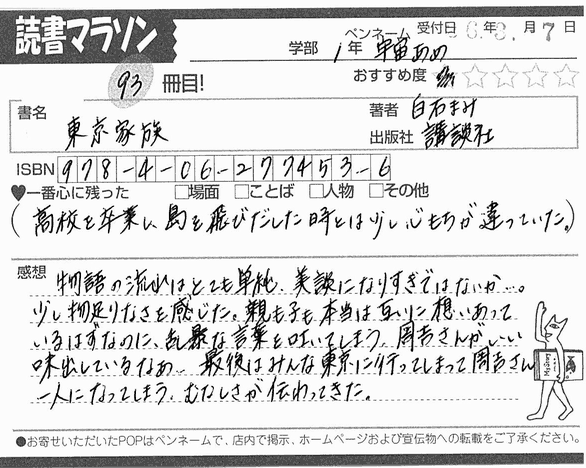 読書マラソン
ペンネーム 受付日 年 月 7日
学部 1年 宇宙あめ
93 冊目! おすすめ度 ☆☆☆☆
書名 東京家族
著者 白石まみ
出版社 講談社
ISBN 978-4-06-277453-6
♥一番心に残った □場面 □ことば □人物 □その他
(高校を卒業し、島を飛びだした時とは少し心もちが違っていた。)
感想 物語の流れはとても単純、美談になりすぎではないか…。
少し物足りなさを感じた。親も子も本当は互いに想いあって
いるはずなのに、乱暴な言葉を吐いてしまう。周吉さんがいい
味出しているなあ、最後はみんな東京に行ってしまって周吉さん
一人になってしまう、むなしさが伝わってきた。
●お寄せいただいたPOPはペンネームで、店内で掲示、ホームページおよび宣伝物への転載をご了承ください。